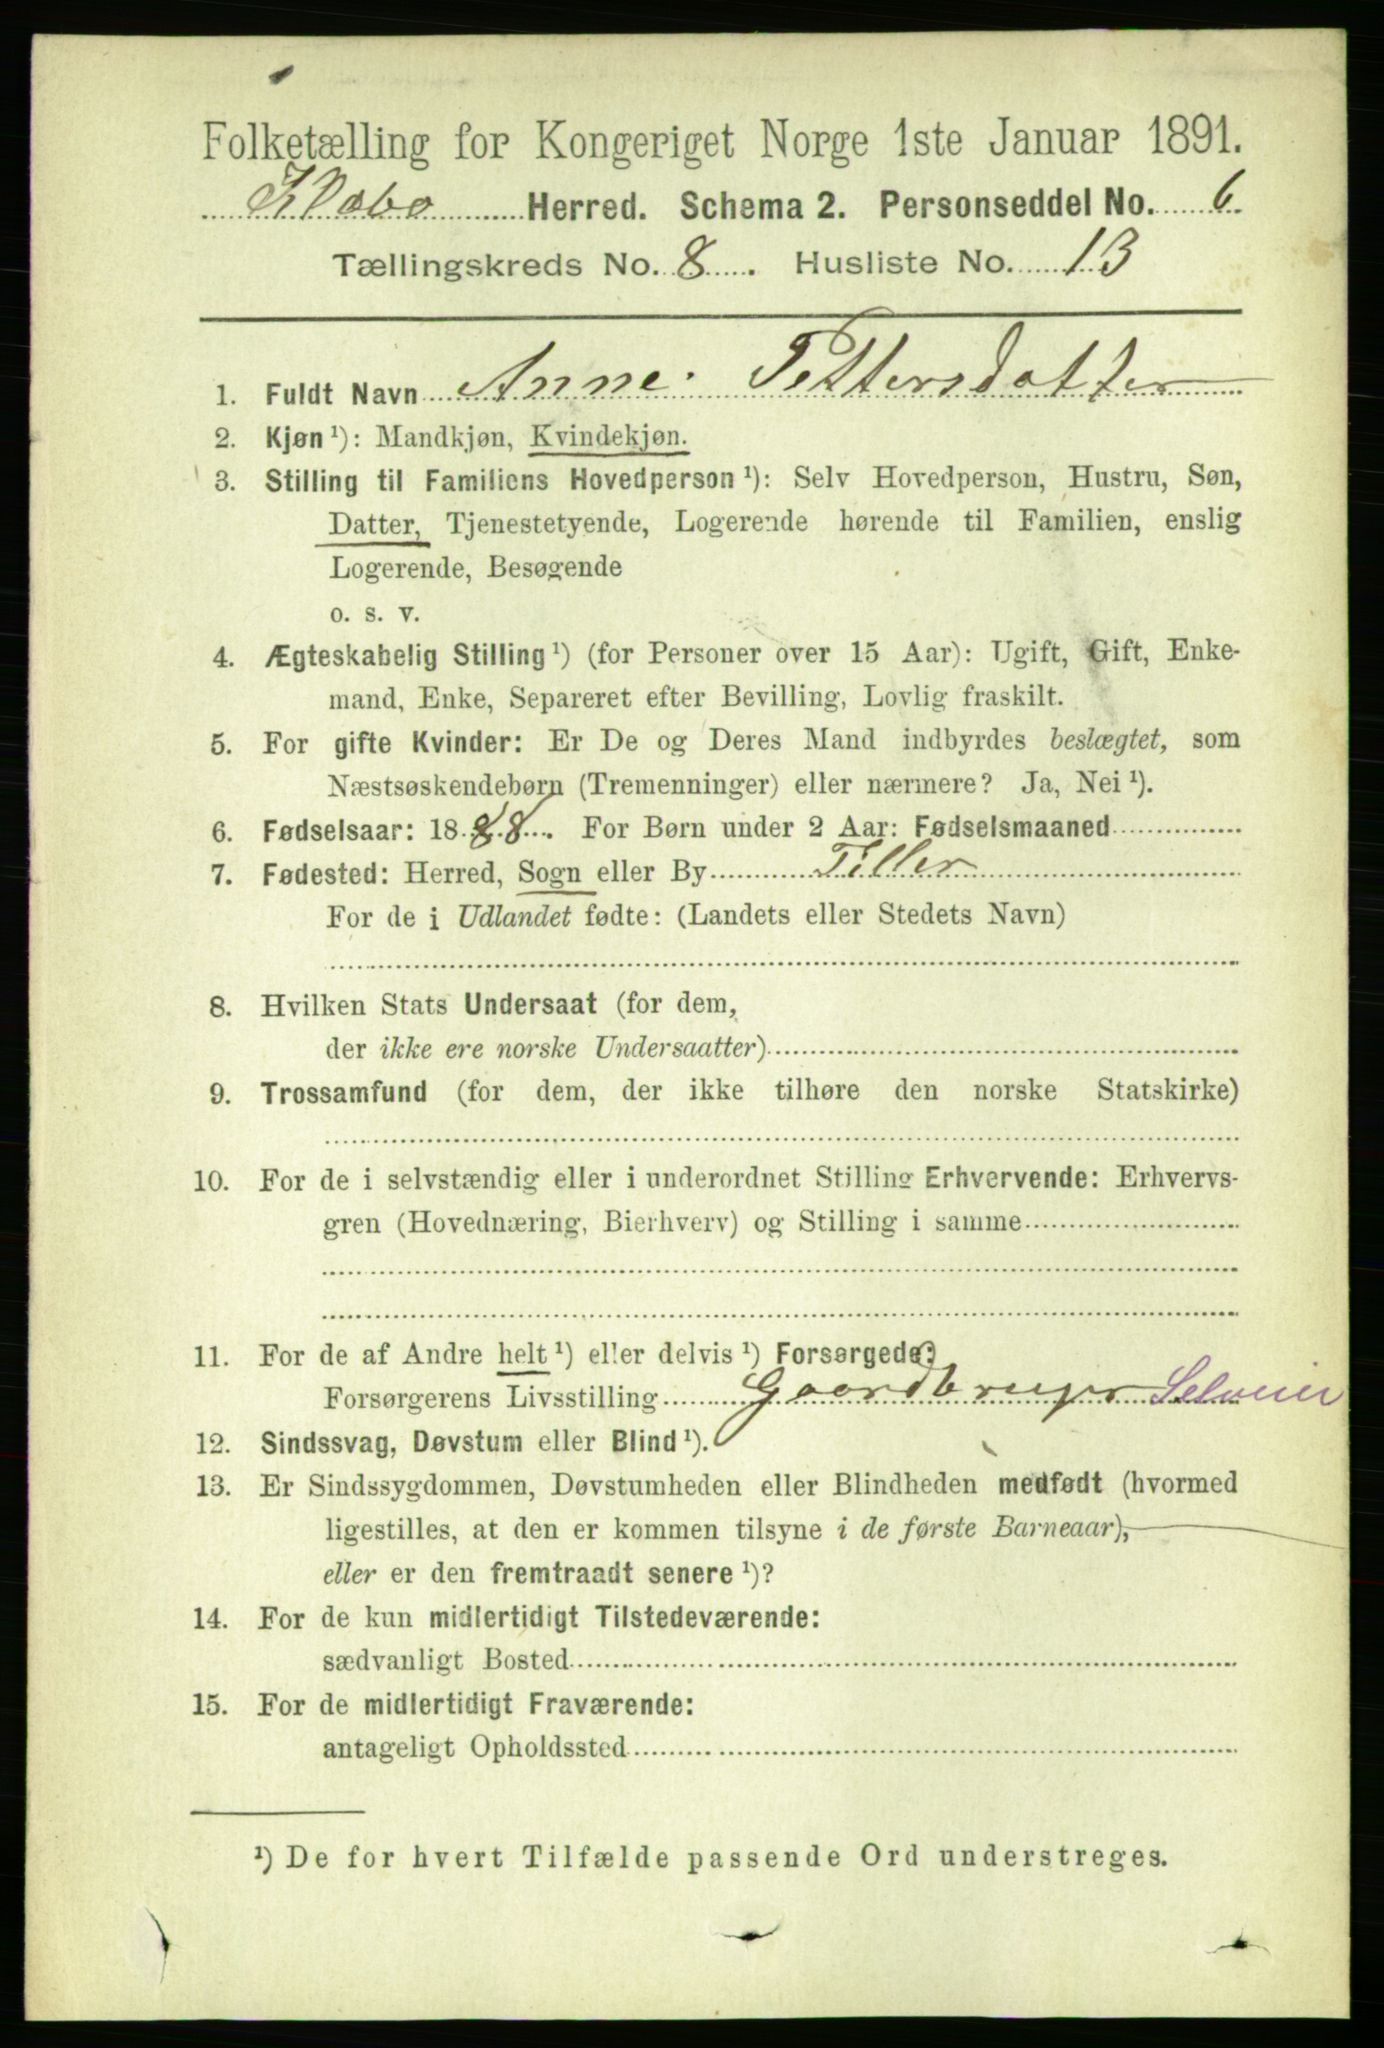 Folketælling for Kongeriget Norge 1ste Januar 1891.
Klæbo Herred. Schema 2. Personseddel No. 6
Tællingskreds No. 8. Husliste No. 13
1. Fuldt Navn Anne Pettersdatter
2. Kjøn ¹): Mandkjøn, Kvindekjøn.
3. Stilling til Familiens Hovedperson ¹): Selv Hovedperson, Hustru, Søn,
Datter, Tjenestetyende, Logerende hørende til Familien, enslig
Logerende, Besøgende
o. s. v.
4. Ægteskabelig Stilling ¹) (for Personer over 15 Aar): Ugift, Gift, Enke-
mand, Enke, Separeret efter Bevilling, Lovlig fraskilt.
5. For gifte Kvinder: Er De og Deres Mand indbyrdes beslægtet, som
Næstsøskendebørn (Tremenninger) eller nærmere? Ja, Nei ¹).
6. Fødselsaar: 1888. For Børn under 2 Aar: Fødselsmaaned
7. Fødested: Herred, Sogn eller By Tiller
For de i Udlandet fødte: (Landets eller Stedets Navn)
8. Hvilken Stats Undersaat (for dem,
der ikke ere norske Undersaatter)
9. Trossamfund (for dem, der ikke tilhøre den norske Statskirke)
10. For de i selvstændig eller i underordnet Stilling Erhvervende: Erhvervs-
gren (Hovednæring, Bierhverv) og Stilling i samme
11. For de af Andre helt ¹) eller delvis ¹) Forsørgede:
Forsørgerens Livsstilling Gaardbruger Selveier
12. Sindssvag, Døvstum eller Blind ¹).
13. Er Sindssygdommen, Døvstumheden eller Blindheden medfødt (hvormed
ligestilles, at den er kommen tilsyne i de første Barneaar),
eller er den fremtraadt senere ¹)?
14. For de kun midlertidigt Tilstedeværende:
sædvanligt Bosted
15. For de midlertidigt Fraværende:
antageligt Opholdssted
¹) De for hvert Tilfælde passende Ord understreges.